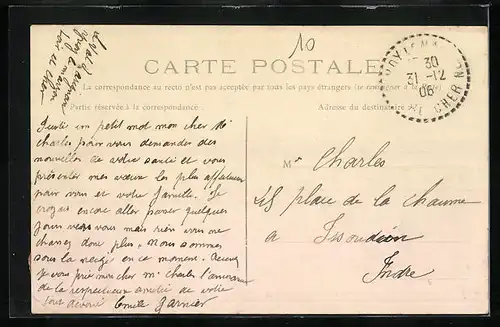 10
CARTE POSTALE
La correspondance au recto n'est pas acceptée par tous les pays étrangers (se renseigner à la
Partie réservée à la correspondance.
Adresse du destinataire
30
31 -12
06
CHER
Loir et Cher
Juste un petit mot mon cher Mr
Charles pour vous demander des
nouvelles de votre santé et vous
présenter mes vœux les plus affectueux
pour vous et votre famille. Je
croyais encore aller passer quelques
jours vers vous mais rien vous ne
chassez donc plus. Nous sommes
sous la neige en ce moment. Recevez
je vous prie mon cher Mr Charles l'assurance
de la respectueuse amitié de votre
tout dévoué Emile Garnier
Mr Charles
place de la chaume
a Issoudun
Indre